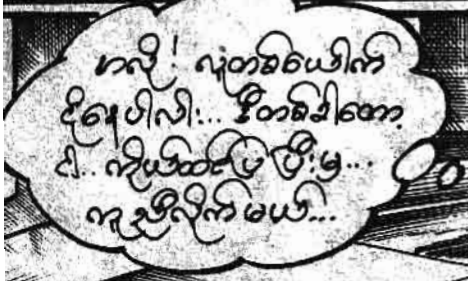 ဟလို! လူတစ်ယောက်
ငိုနေပါလား... ဒီတစ်ခါတော့
ငါ.. ကိုယ်ထင်ပြပြီးမှ...
ကူညီလိုက်မယ်...